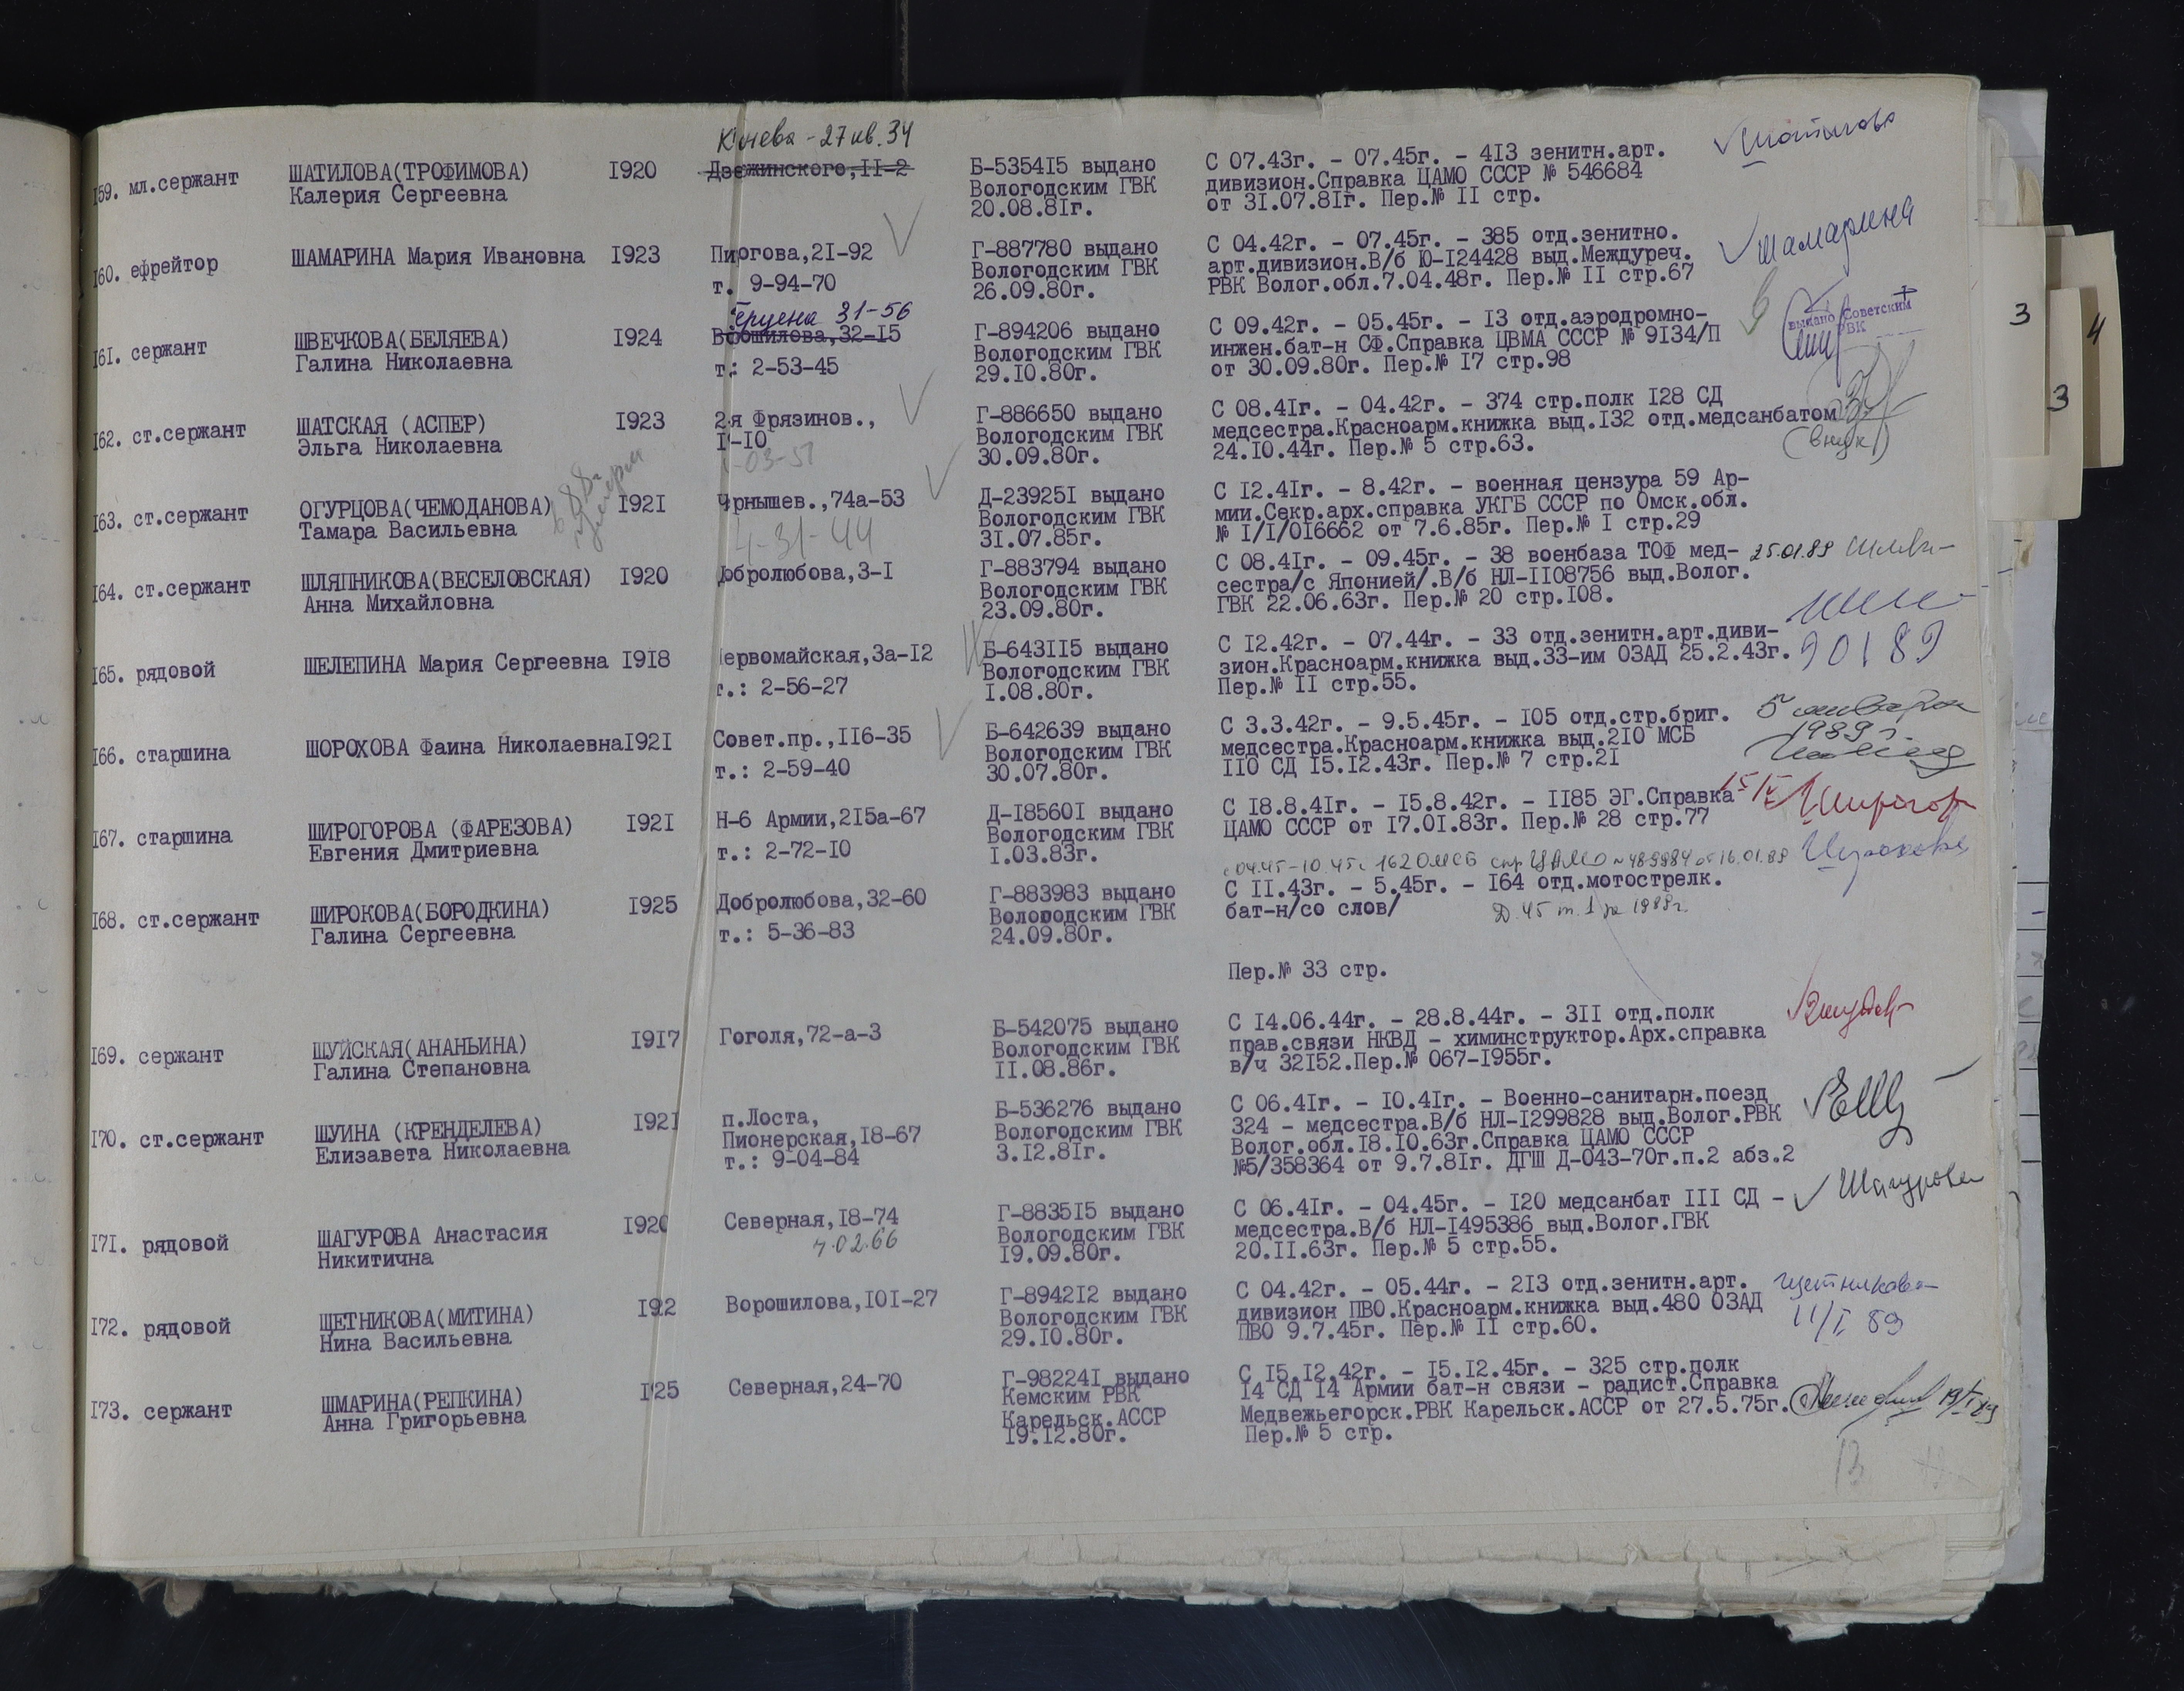 Конева - 27 кв. 34
159. мл.сержант ШАТИЛОВА(ТРОФИМОВА) I920 Дзержинского,II-2 Б-5354I5 выдано С 07.43г. - 07.45г. - 4I3 зенитн.арт.
Калерия Сергеевна Вологодским ГВК дивизион.Справка ЦАМО СССР № 546684
20.08.8Iг. от 3I.07.8Iг. Пер.№ II стр.
I60. ефрейтор ШАМАРИНА Мария Ивановна I923 Пирогова,2I-92 Г-887780 выдано С 04.42г. - 07.45г. - 385 отд.зенитно. Шамарина
Вологодским ГВК арт.дивизион.В/б Ю-I24428 выд.Междуреч.
т. 9-94-70 26.09.80г. РВК Волог.обл.7.04.48г. Пер.№ II стр.67
Герцена 31-56
I6I. сержант ШВЕЧКОВА(БЕЛЯЕВА) I924 Ворошилова,32-I5 Г-894206 выдано С 09.42г. - 05.45г. - I3 отд.аэродромно- выдано Советским
Галина Николаевна Вологодским ГВК инжен.бат-н СФ.Справка ЦВМА СССР № 9I34/П РВК
т.: 2-53-45 29.I0.80г. от 30.09.80г. Пер.№ I7 стр.98
I62. ст.сержант ШАТСКАЯ (АСПЕР) I923 2-я Фрязинов., Г-886650 выдано С 08.4Iг. - 04.42г. - 374 стр.полк I28 СД
Эльга Николаевна I-I0 Вологодским ГВК медсестра.Красноарм.книжка выд.I32 отд.медсанбатом
-03-51 30.09.80г. 24.I0.44г. Пер.№ 5 стр.63. (внук)
I63. ст.сержант ОГУРЦОВА(ЧЕМОДАНОВА) I92I Чернышев.,74а-53 Д-23925I выдано С I2.4Iг. - 8.42г. - военная цензура 59 Ар-
Тамара Васильевна Вологодским ГВК мии.Секр.арх.справка УКГБ СССР по Омск.обл.
4-31-44 3I.07.85г. № I/I/0I6662 от 7.6.85г. Пер.№ I стр.29
I64. ст.сержант ШЛЯПНИКОВА(ВЕСЕЛОВСКАЯ) I920 Добролюбова,3-I Г-883794 выдано С 08.4Iг. - 09.45г. - 38 военбаза ТОФ мед- 25.01.89
Анна Михайловна Вологодским ГВК сестра/с Японией/.В/б НЛ-II08756 выд.Волог.
23.09.80г. ГВК 22.06.63г. Пер.№ 20 стр.I08.
I65. рядовой ШЕЛЕПИНА Мария Сергеевна I9I8 Первомайская,3а-I2 Б-643II5 выдано С I2.42г. - 07.44г. - 33 отд.зенитн.арт.диви-
Вологодским ГВК зион.Красноарм.книжка выд.33-им ОЗАД 25.2.43г.
т.: 2-56-27 I.08.80г. Пер.№ II стр.55.
I66. старшина ШОРОХОВА Фаина НиколаевнаI92I Совет.пр.,II6-35 Б-642639 выдано С 3.3.42г. - 9.5.45г. - I05 отд.стр.бриг. 5 января
Вологодским ГВК медсестра.Красноарм.книжка выд.2I0 МСБ 1989 г.
т.: 2-59-40 30.07.80г. II0 СД I5.I2.43г. Пер.№ 7 стр.2I
I67. старшина ШИРОГОРОВА (ФАРЕЗОВА) I92I Н-6 Армии,2I5а-67 Д-I8560I выдано С I8.8.4Iг. - I5.8.42г. - II85 ЭГ.Справка
Евгения Дмитриевна Вологодским ГВК ЦАМО СССР от I7.0I.83г. Пер.№ 28 стр.77
т.: 2-72-I0 I.03.83г.
с 04.45-10.45г 162 ОМСБ спр ЦАМО №489984 от 16.01.89 Широкова
I68. ст.сержант ШИРОКОВА(БОРОДКИНА) I925 Добролюбова,32-60 Г-883983 выдано С II.43г. - 5.45г. - I64 отд.мотострелк.
Галина Сергеевна Вологодским ГВК бат-н/со слов/ Д. 45 т. 1 за 1988г.
т.: 5-36-83 24.09.80г.
Пер.№ 33 стр.
I69. сержант ШУЙСКАЯ(АНАНЬИНА) I9I7 Гоголя,72-а-3 Б-542075 выдано С I4.06.44г. - 28.8.44г. - 3II отд.полк
Галина Степановна Вологодским ГВК прав.связи НКВД - химинструктор.Арх.справка
II.08.86г. в/ч 32I52.Пер.№ 067-I955г.
I70. ст.сержант ШУИНА (КРЕНДЕЛЕВА) I92I п.Лоста, Б-536276 выдано С 06.4Iг. - I0.4Iг. - Военно-санитарн.поезд
Елизавета Николаевна Пионерская,I8-67 Вологодским ГВК 324 - медсестра.В/б НЛ-I299828 выд.Волог.РВК
т.: 9-04-84 3.I2.8Iг. Волог.обл.I8.I0.63г.Справка ЦАМО СССР
№5/358364 от 9.7.8Iг. ДГШ Д-043-70г.п.2 абз.2
I7I. рядовой ШАГУРОВА Анастасия I920 Северная,I8-74 Г-8835I5 выдано С 06.4Iг. - 04.45г. - I20 медсанбат III СД - Шагурова
Никитична 4.02.66 Вологодским ГВК медсестра.В/б НЛ-I495386 выд.Волог.ГВК
I9.09.80г. 20.II.63г. Пер.№ 5 стр.55.
I72. рядовой ЩЕТНИКОВА(МИТИНА) I92 Ворошилова,I0I-27 Г-8942I2 выдано С 04.42г. - 05.44г. - 2I3 отд.зенитн.арт. Щетникова
Нина Васильевна Вологодским ГВК дивизион ПВО.Красноарм.книжка выд.480 ОЗАД 11/I 89
29.I0.80г. ПВО 9.7.45г. Пер.№ II стр.60.
I73. сержант ШМАРИНА(РЕПКИНА) I25 Северная,24-70 Г-98224I выдано С I5.I2.42г. - I5.I2.45г. - 325 стр.полк
Анна Григорьевна Кемским РВК I4 СД I4 Армии бат-н связи - радист.Справка
Карельск.АССР Медвежьегорск.РВК Карельск.АССР от 27.5.75г.
I9.I2.80г. Пер.№ 5 стр.
3
4
3